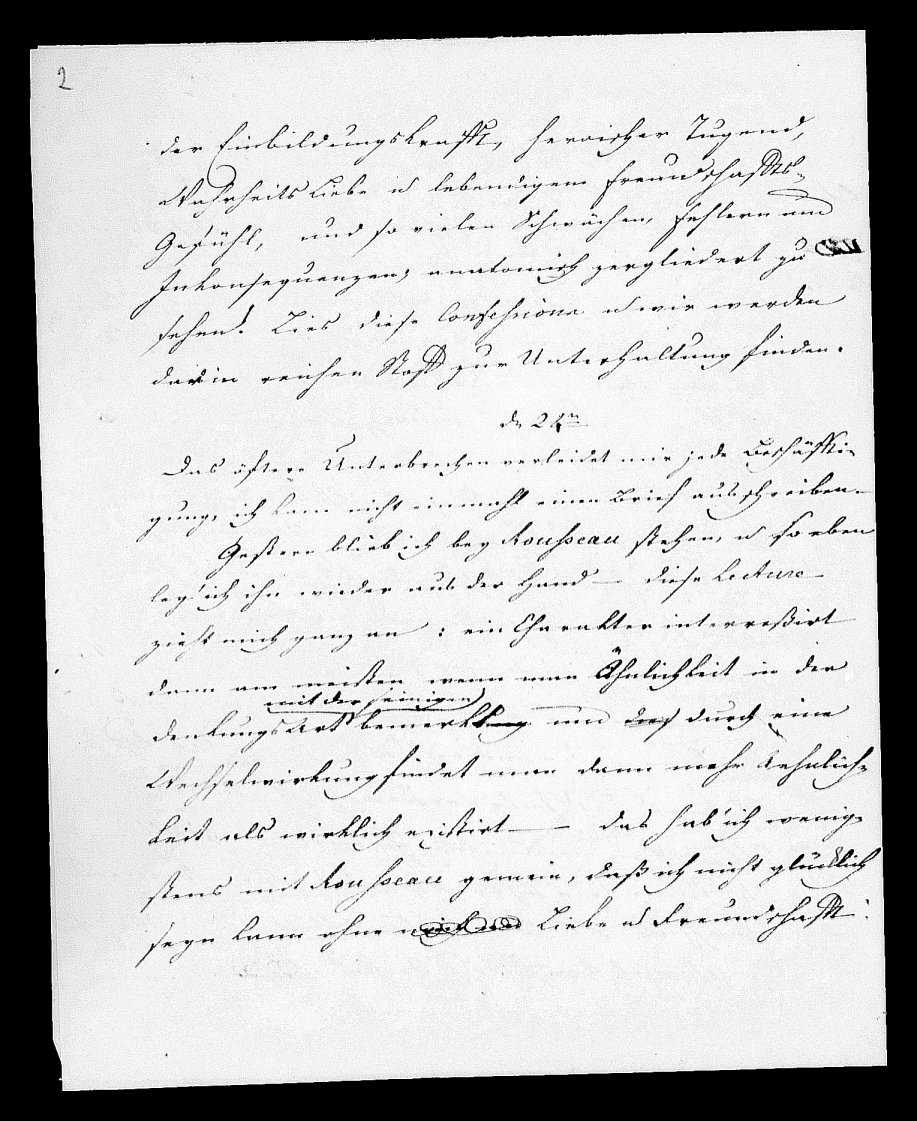 2
der Einbildungskrafft, heroischer Tugend,
Wahrheits Liebe u lebendigem Freundschaffts-
Gefühl, und so vielen Schwächen, Fehlern und
Inkonsequenzen, anatomisch zergliedert zu
sehen. Lies diese Confessions u wir werden
darin reichen Stoff zur Unterhaltung finden.
d 24ten
Das öftere Unterbrechen verleidet mir jede Beschäffti-
gung, ich kann nicht einmahl einen Brief aus schreiben.—
Gestern blieb ich bey Rousseau stehen, u so eben
leg' ich ihn wieder aus der Hand — diese Lecture
zieht mich ganz an : ein Charakter interreßirt
dann am meisten wenn man Ähnlichkeit in der
mit der seinigen
denkungsArt bemerkt und durch eine
Wechselwirkung findet man dann mehr Aehnlich-
keit als wirklich existirt — das hab' ich wenig-
stens mit Rousseau gemein, daß ich nicht glücklich
seyn kann ohne Liebe u Freundschafft.